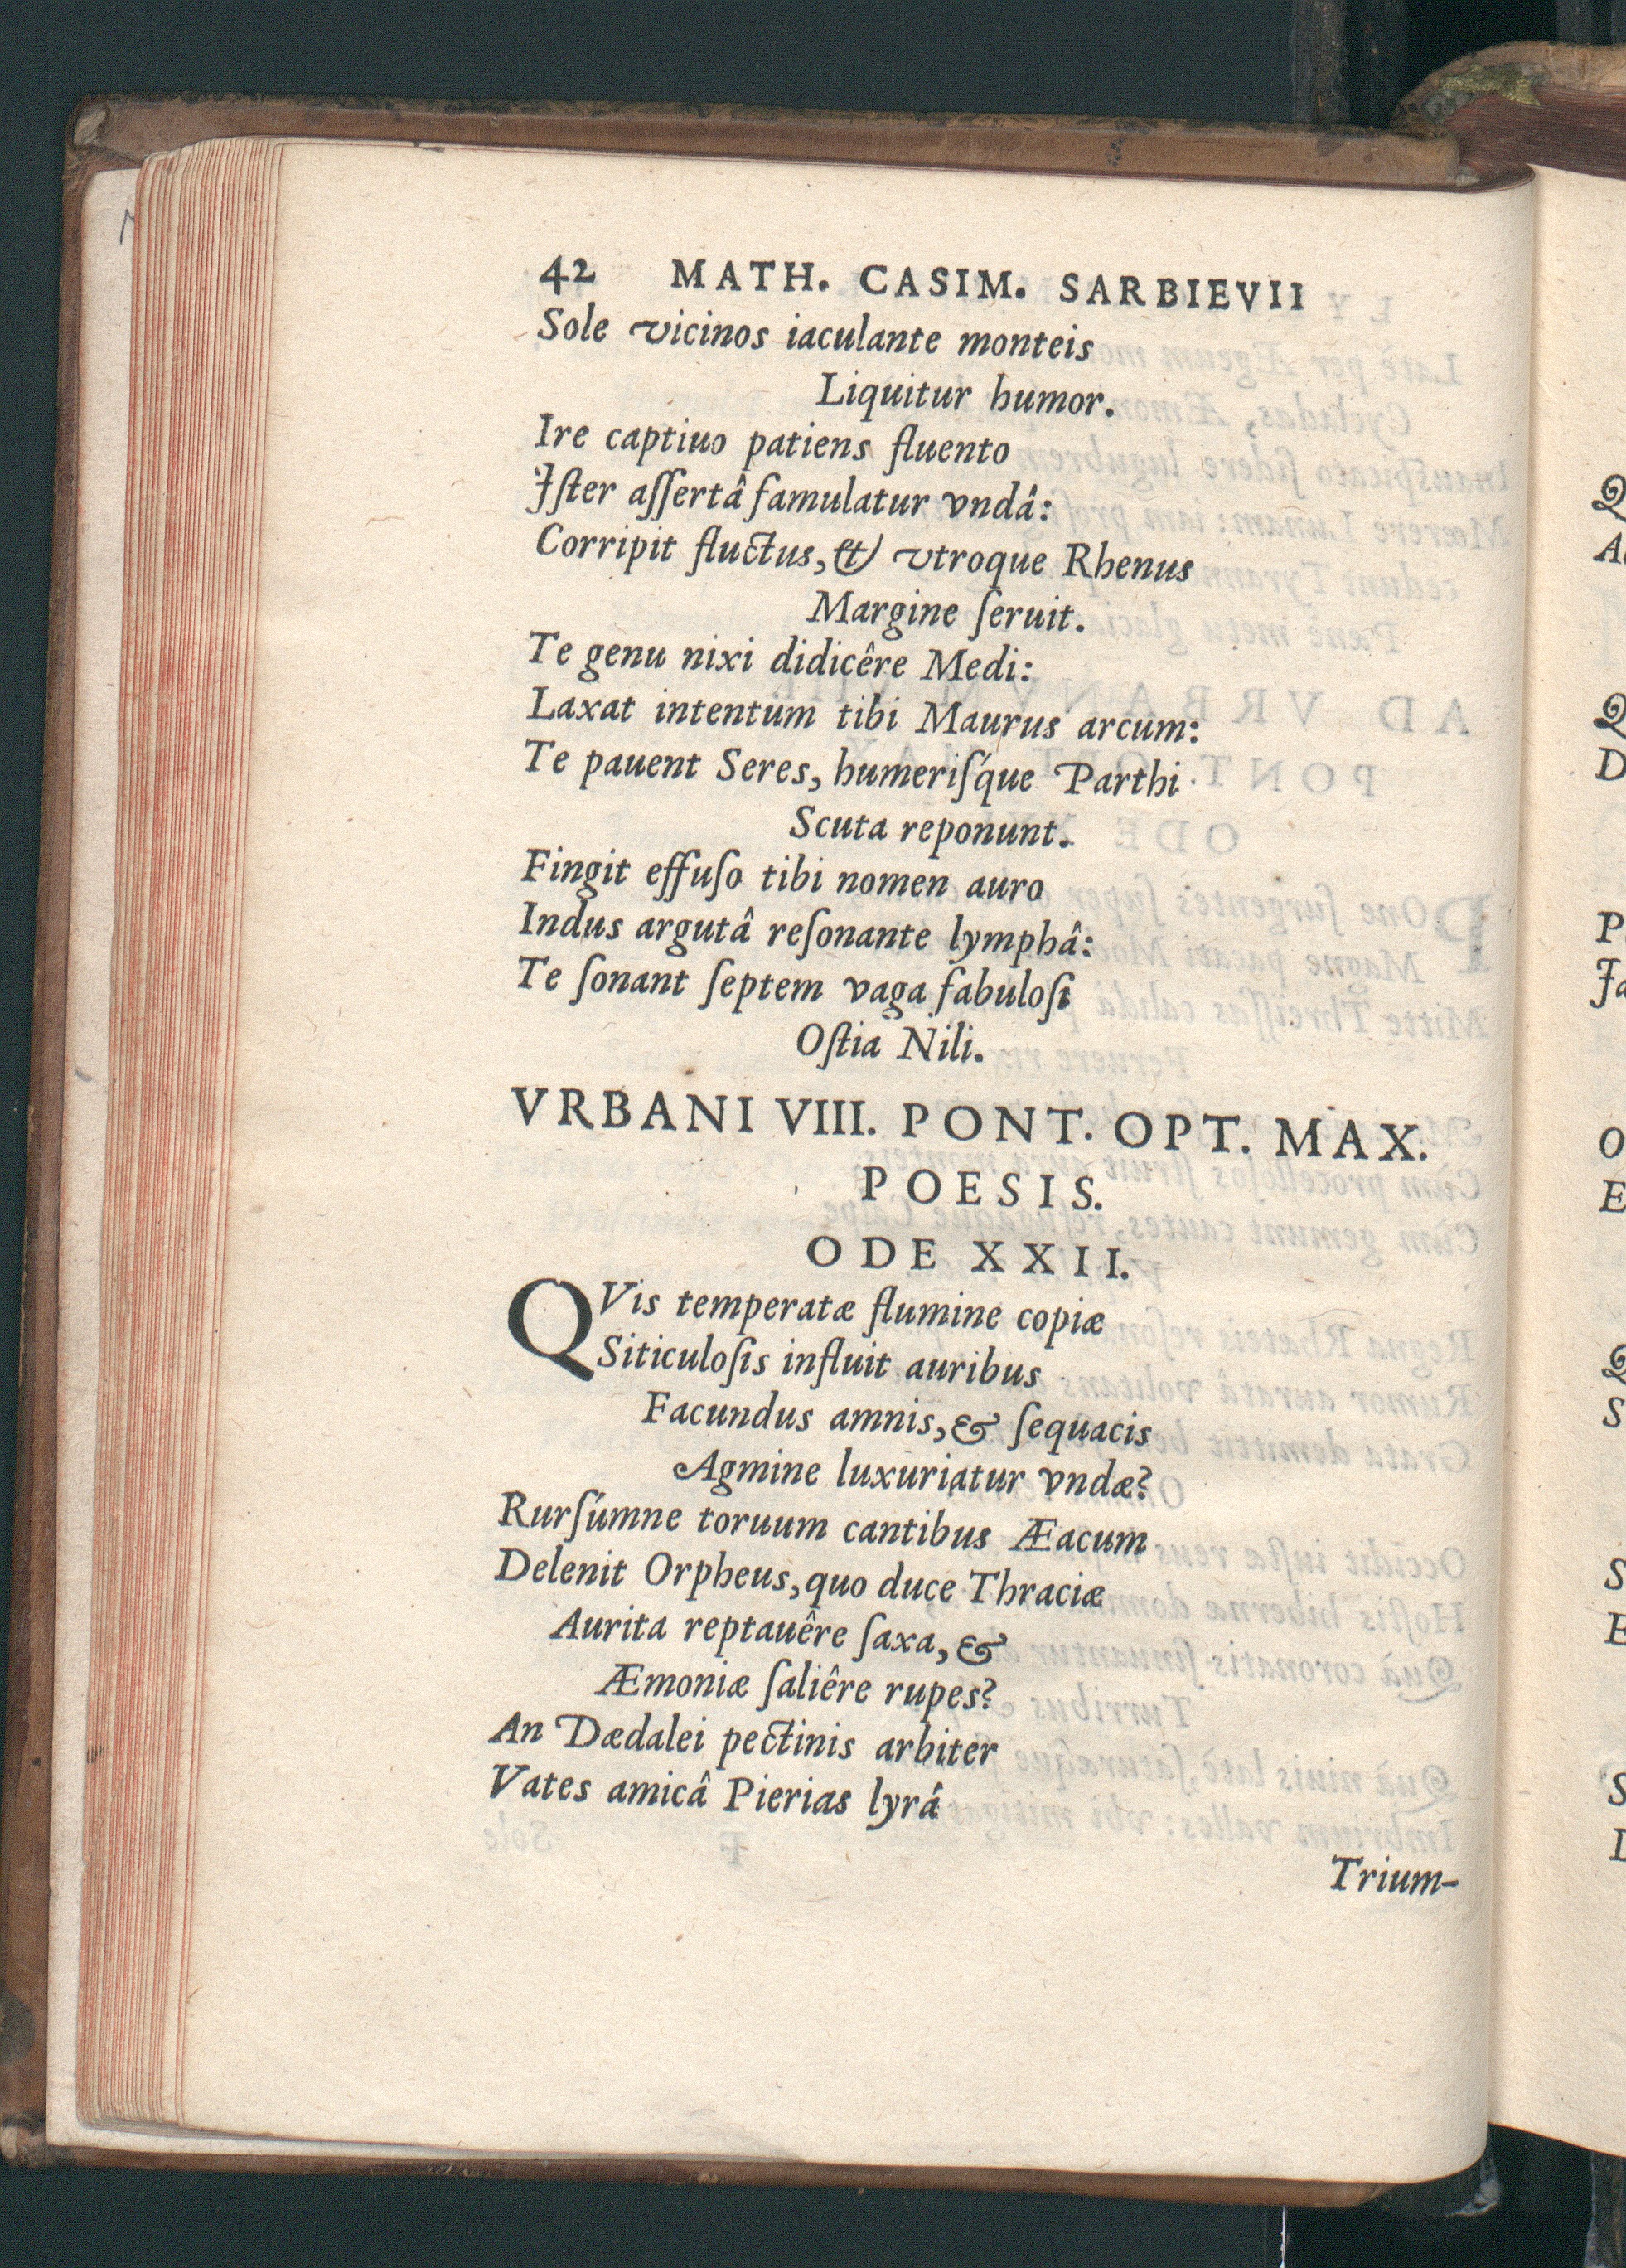 42 MATH. CASIM. SARBIEVII
Sole vicinos iaculante monteis
Liquitur humor.
Ire captiuo patiens fluento
Iſter aſſertâ famulatur vndâ:
Corripit fluctus, & vtroque Rhenus
Margine ſeruit.
Te genu nixi didicêre Medi:
Laxat intentum tibi Maurus arcum:
Te pauent Seres, humeriſq́ue Parthi
Scuta reponunt.
Fingit effuſo tibi nomen auro
Indus argutâ reſonante lymphâ:
Te ſonant ſeptem vaga fabuloſi
Oſtia Nili.
VRBANI VIII. PONT. OPT. MAX.
POESIS.
ODE XXII.
QVis temperatæ flumine copiæ
Siticuloſis influit auribus
Facundus amnis, & ſequacis
Agmine luxuriatur vndæ?
Rurſúmne toruum cantibus Æacum
Delenit Orpheus, quo duce Thraciæ
Aurita reptauêre ſaxa, &
Æmoniæ ſaliêre rupes?
An Dædalei pectinis arbiter
Vates amicâ Pierias lyrâ
Trium-